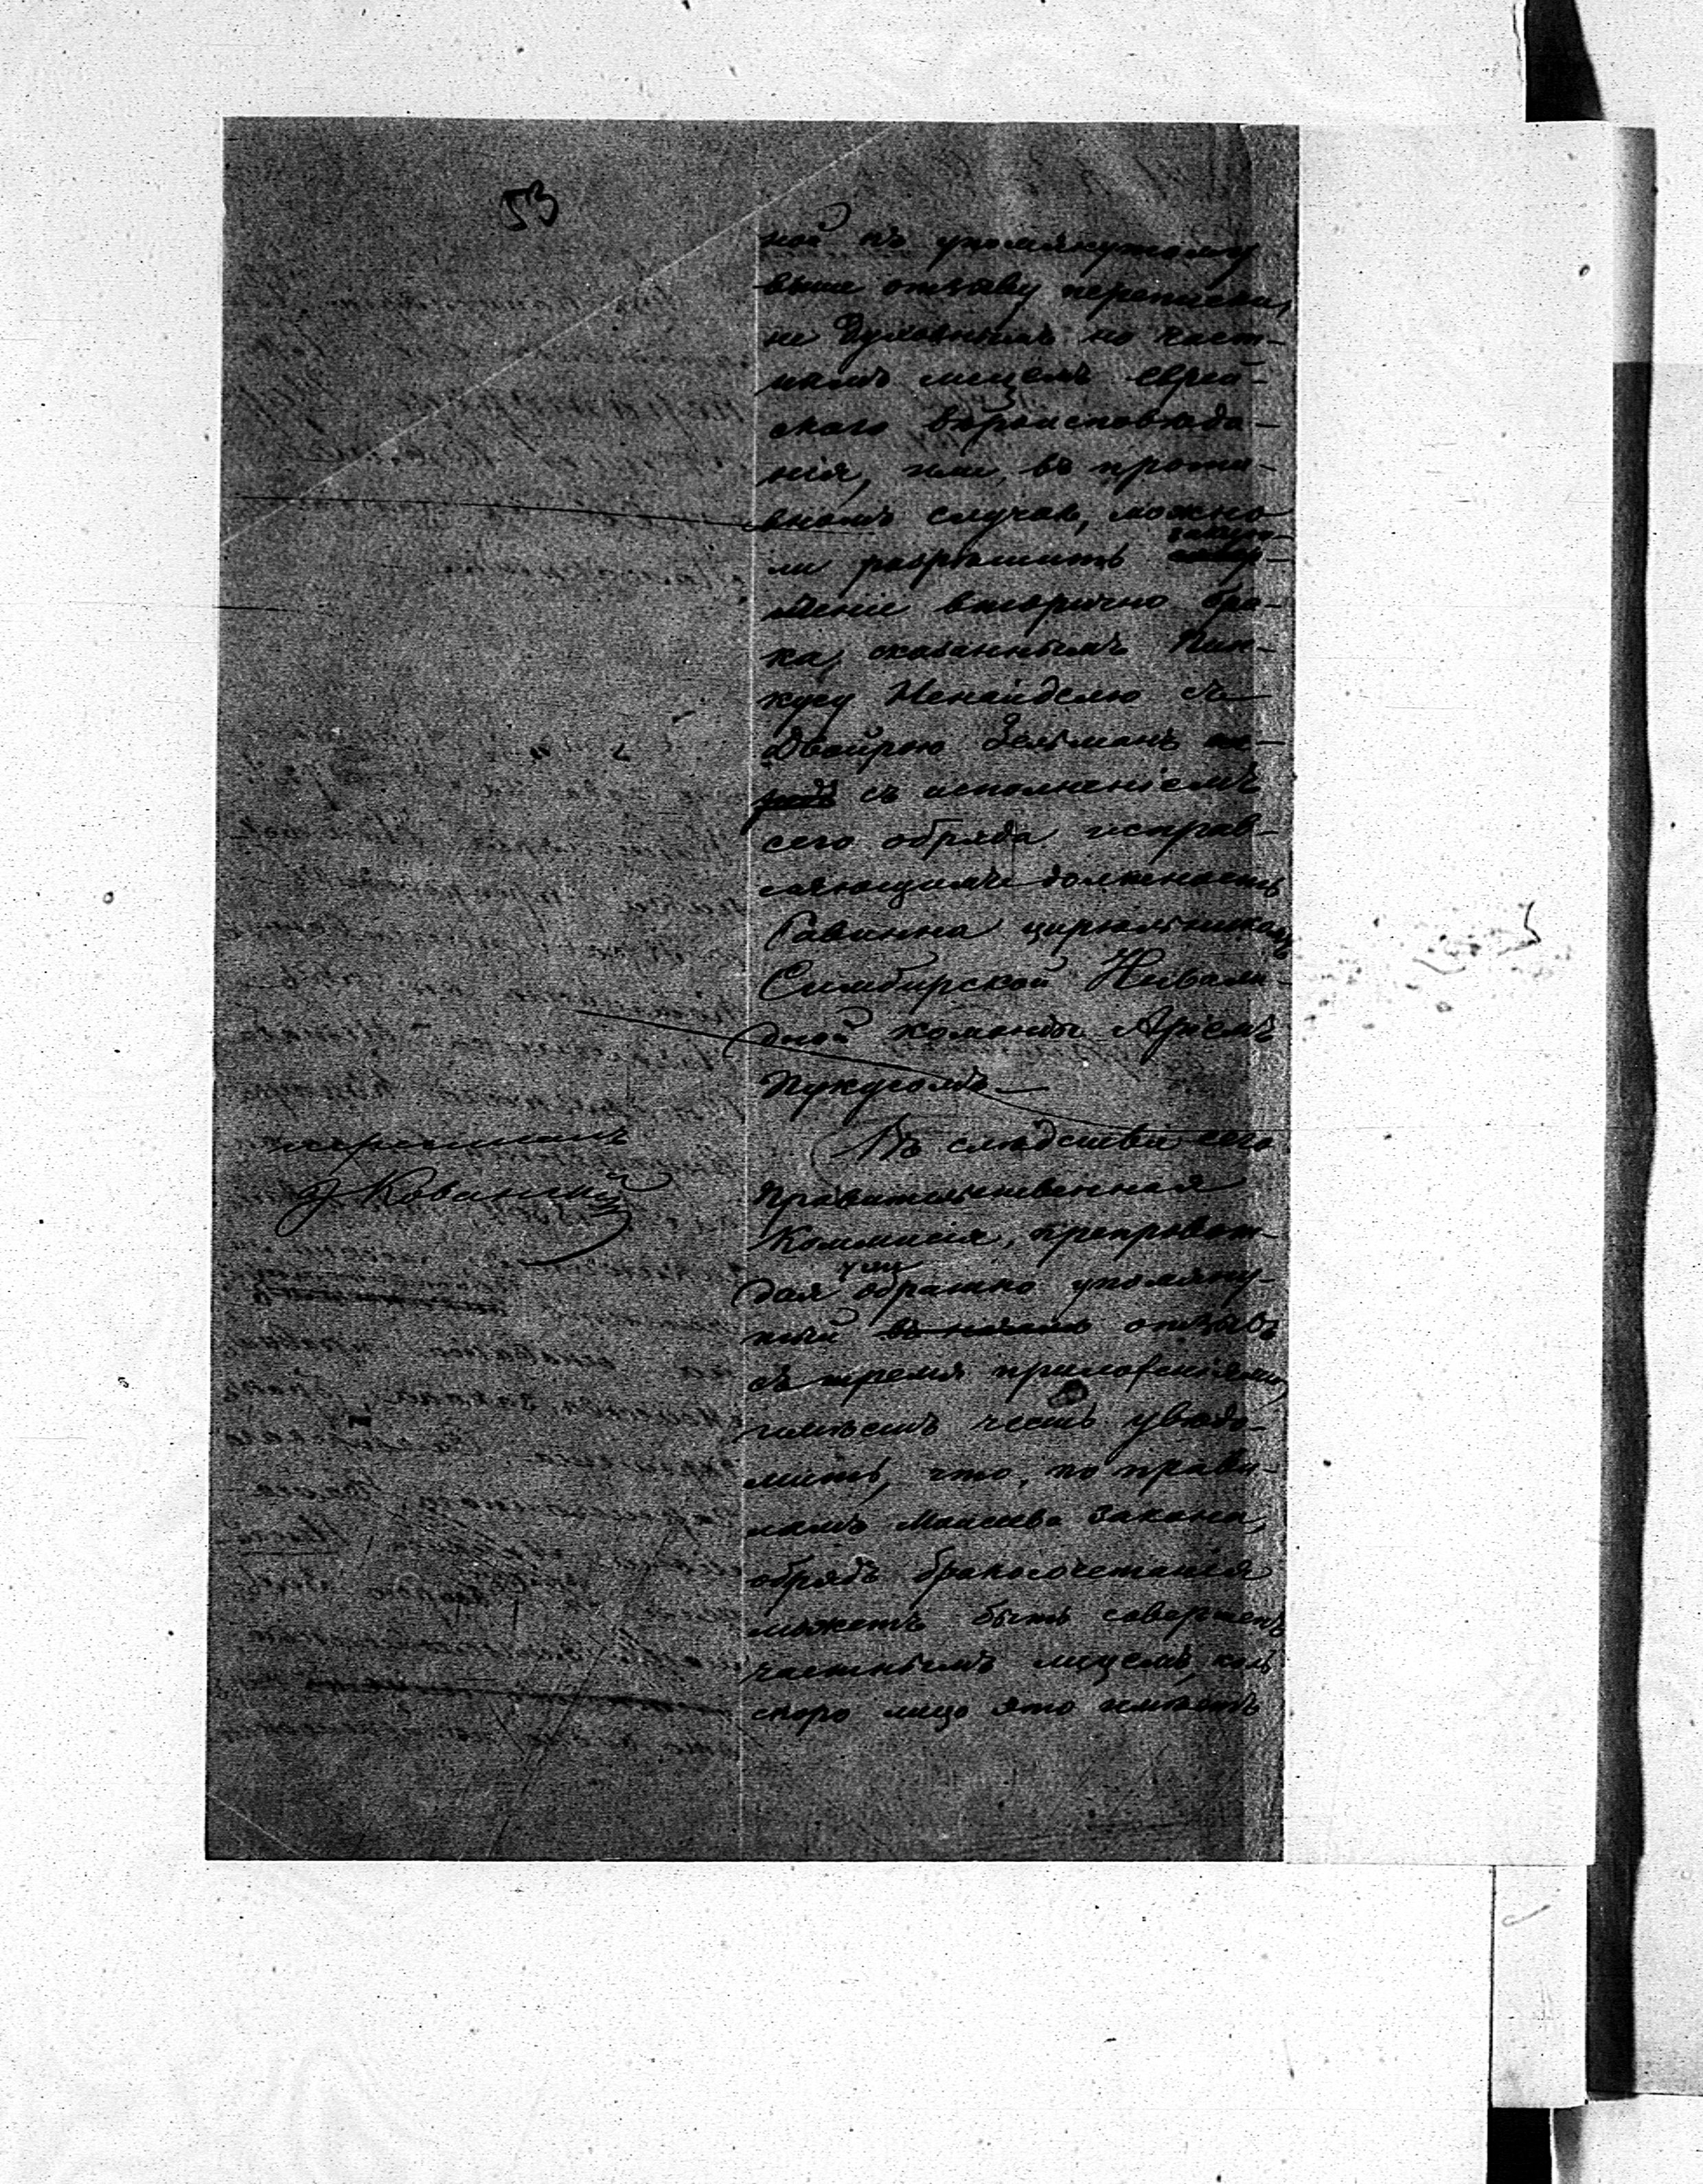 53
ной къ упомянутому
выше отзыву переписки,
не Духовнымъ но част-
нымъ лицемъ еврей-
скаго вѣроисповѣда-
нія, или, въ проти-
вномъ случаѣ, можно
ли разрѣшить
шеніе вторично бра-
ка, сказаннымъ Пин-
кусу Ненайделю съ
Двойрою Зельманъ
съ исполненіемъ
сего обряда исправ-
ляющимъ должность
Раввина цирюльникомъ
Симбирской Инвали-
дной команды Аріемъ
Пукусомъ.—
Въ слѣдствіи сего
Правительственная
Коммисія, препровож-
дая обратно упомяну-
тый отзывъ
съ тремя приложеніями,
имѣетъ честь увѣдо-
мить, что, по прави-
ламъ Моисеева Закона,
обрядъ бракосочетанія
можетъ быть совершенъ
частнымъ лицемъ, коль
скоро лицо это имѣетъ